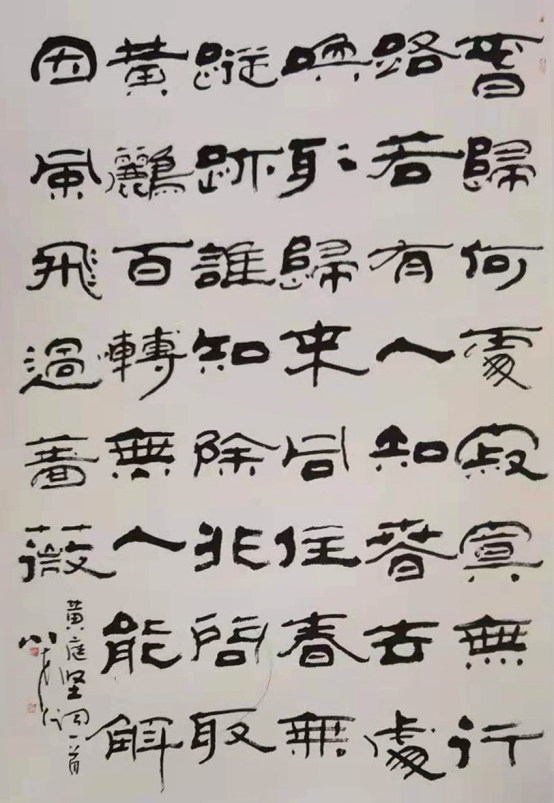 春歸何處寂寞無行
路若有人知春去處
喚取歸來同住春無
蹤跡誰知除非問取
黃鸝百轉無人能解
因風飛過薔薇
黄庭坚词一首